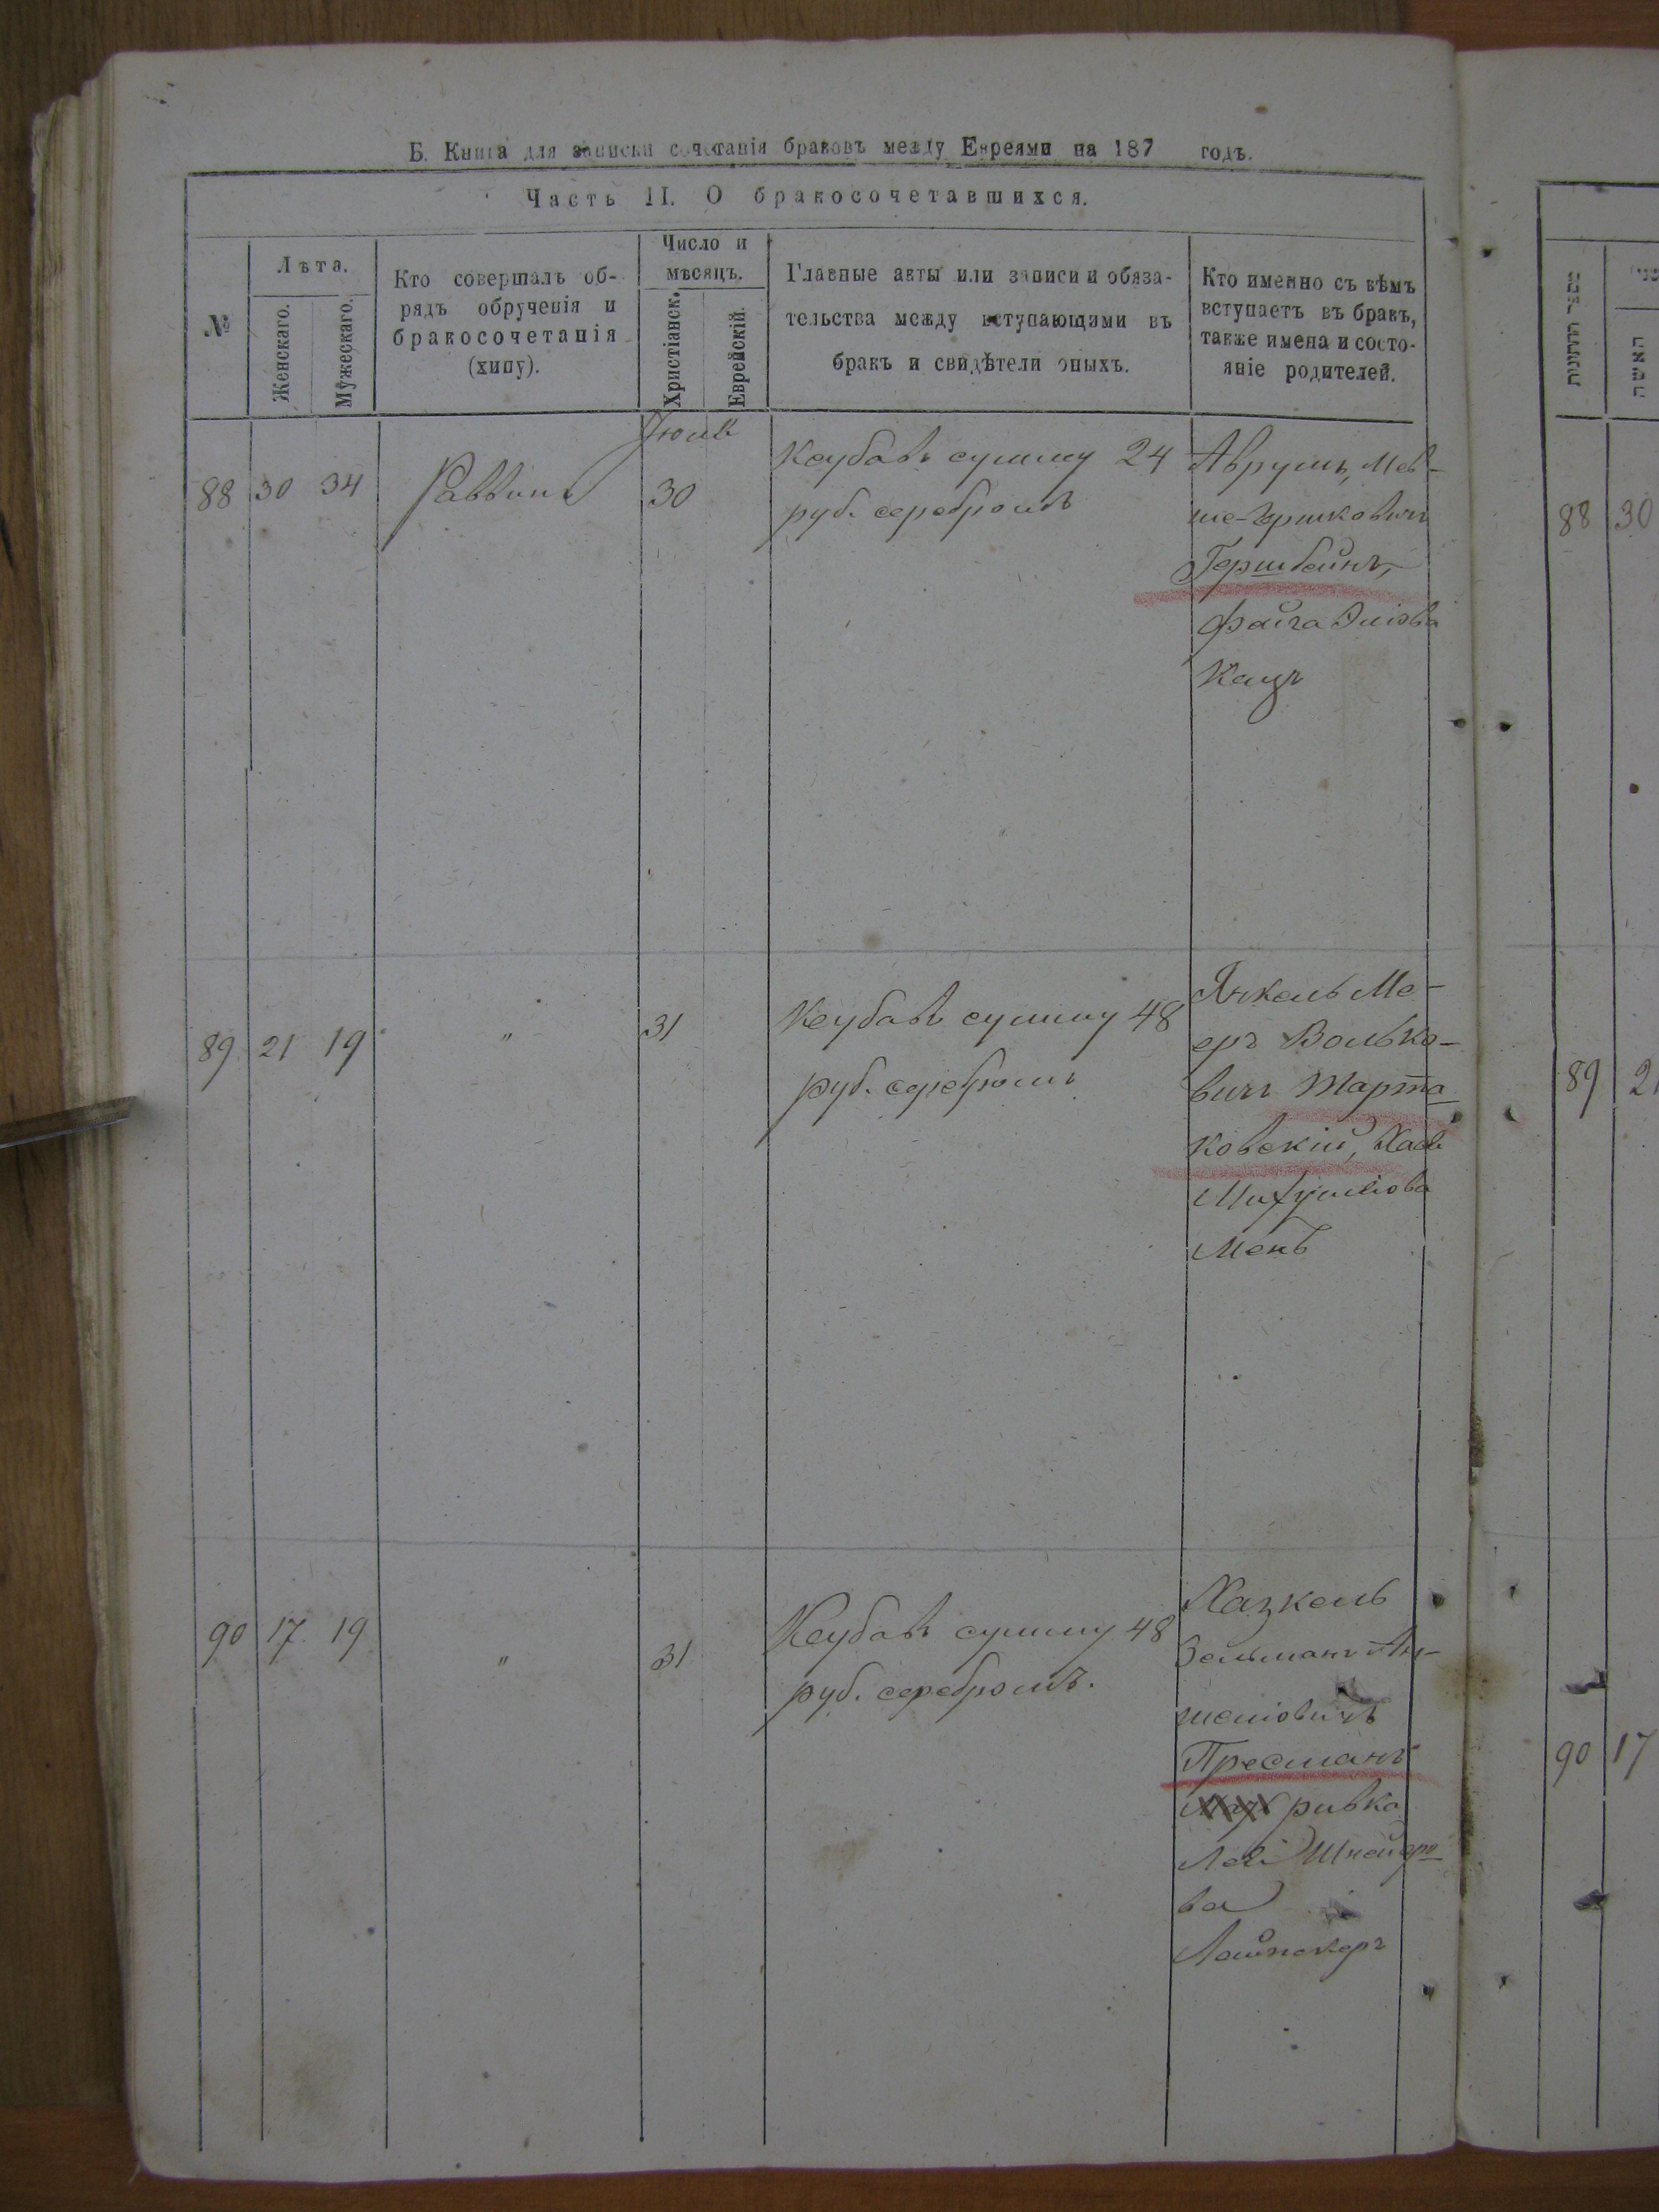 Б. Книга для записки сочетанія браковъ между Евреями на 187 годъ.
Часть II. О бракосочетавшихся.
№
Лѣта.
Женскаго.
Мужескаго.
Кто совершалъ об-
рядъ обрученія и
бракосочетанія
(хипу).
Число и
мѣсяцъ.
Христіанск.
Еврейскій.
Главные акты или записи и обяза-
тельства между вступающими въ
бракъ и свидѣтели оныхъ.
Кто именно съ кѣмъ
вступаетъ въ бракъ,
также имена и состо-
яніе родителей.
88 30 34 Раввинъ
30
Ксубавъ сумму 24
руб. серебромъ
Аврумъ, Мов-
ше-Гершковичъ
Гершбейнъ,
Файга
Кацъ
89 21 19 " 31
Ксубавъ сумму 48
руб. серебромъ
Янкель Ме-
еръ Волько-
вичъ Тарта-
ковскій,
Мень
90 17 19 " 31
Ксубавъ сумму 48
руб. серебромъ.
Хацкель
Зельманъ Ан-
шеліовичъ
Пресманъ
ривка
Лея Шнеуро
ва
88 30
89 2
90 17
האשה